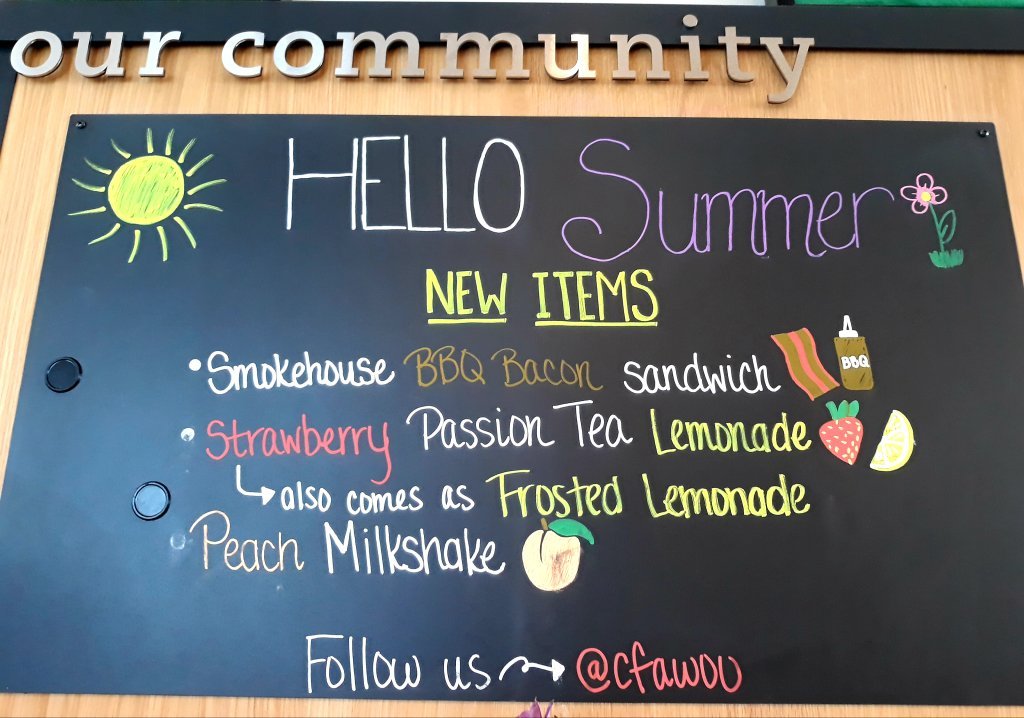 our community
HELLO Summer
NEW ITEMS
• Smokehouse BBQ Bacon sandwich
BBQ
• Strawberry Passion Tea Lemonade
also comes as Frosted Lemonade
Peach Milkshake
Follow us → @cfawou